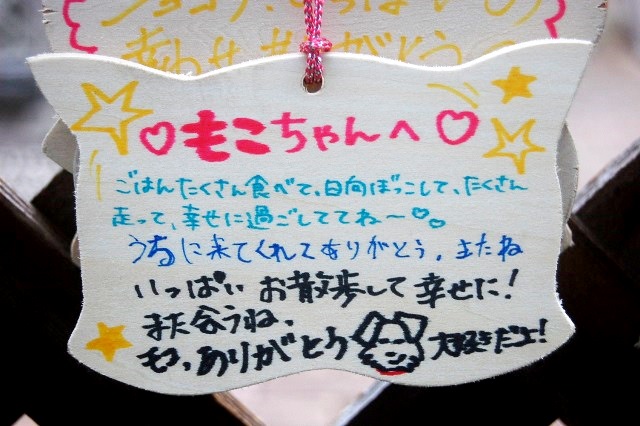 幸わせ ありがとう
♡もこちゃんへ♡
ごはんたくさん食べて、日向ぼっこして、たくさん
走って、幸せに過ごしててね〜♡♡
うちに来てくれてありがとう。またね
いっぱい お散歩して 幸せに!
また会うね、
もこ、ありがとう 大好きだよ!